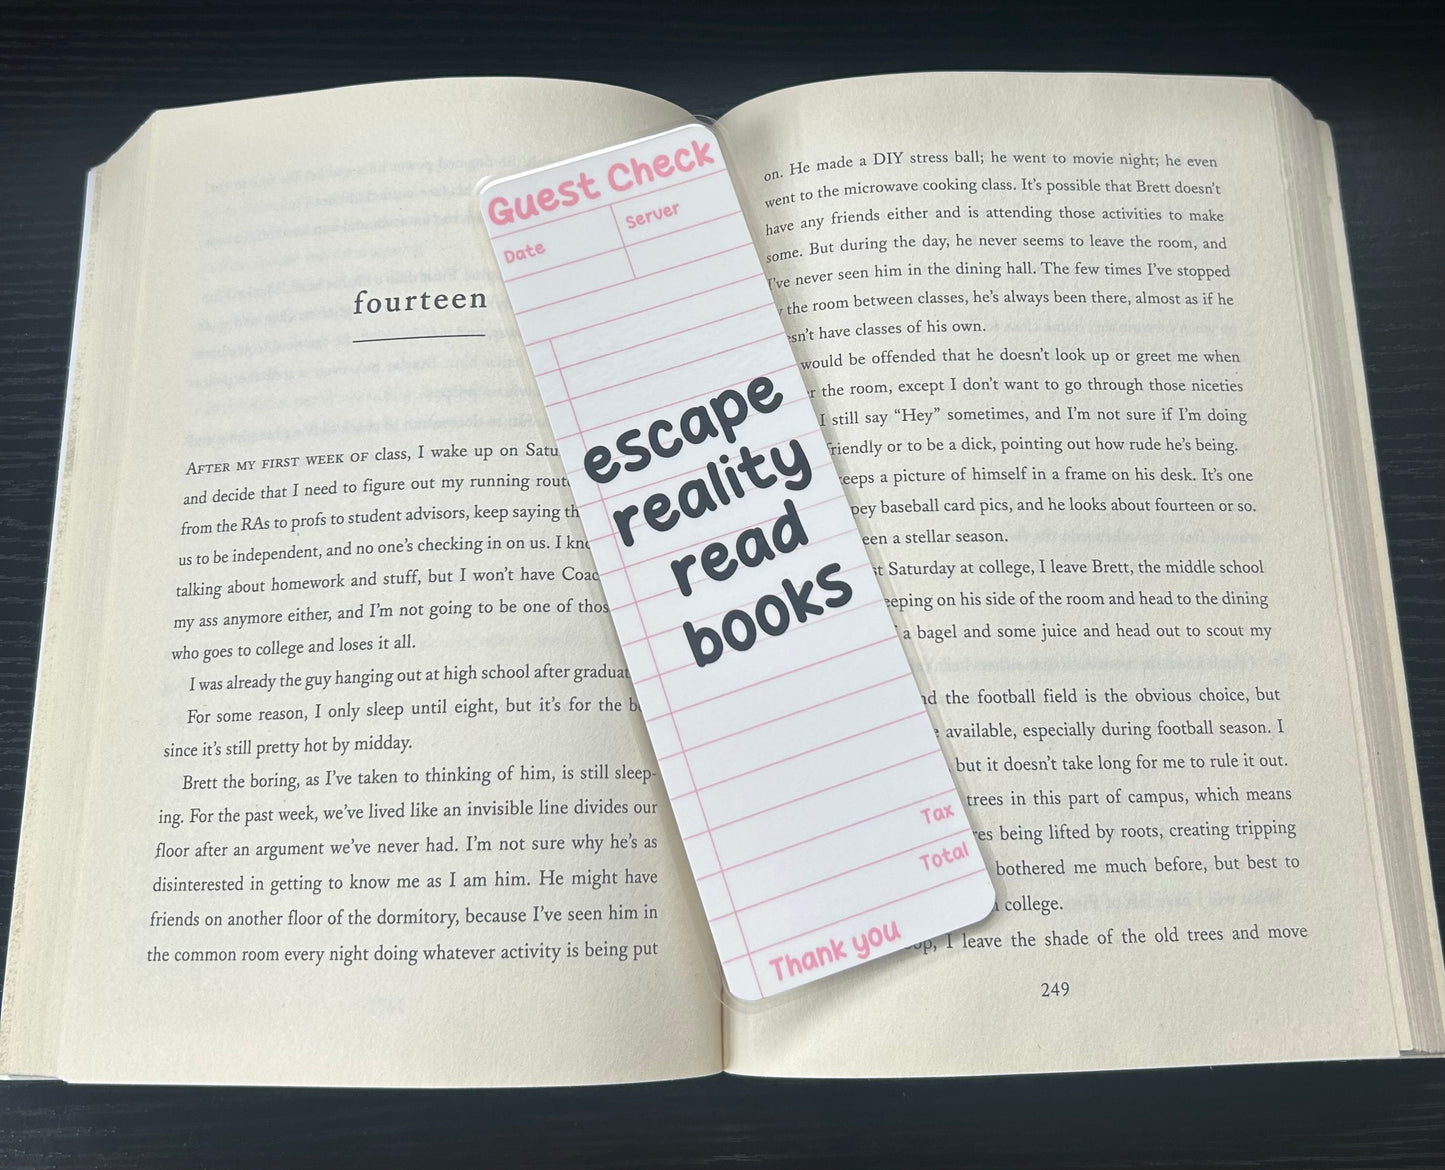 fourteen
AFTER MY FIRST WEEK OF class, I wake up on
and decide that I need to figure out my running
from the RAs to profs to student advisors, keep saying
us to be independent, and no one's checking in on us. I
talking about homework and stuff, but I won't have
my ass anymore either, and I'm not going to be one of
who goes to college and loses it all.
I was already the guy hanging out at high school after
For some reason, I only sleep until eight, but it's for the
since it's still pretty hot by midday.
Brett the boring, as I've taken to thinking of him, is still sleep-
ing. For the past week, we've lived like an invisible line divides our
floor after an argument we've never had. I'm not sure why he's as
disinterested in getting to know me as I am him. He might have
friends on another floor of the dormitory, because I've seen him in
the common room every night doing whatever activity is being put
Guest Check
Date
Server
escape
reality
read
books
Tax
Total
Thank you
on. He made a DIY stress ball; he went to movie night; he even
went to the microwave cooking class. It's possible that Brett doesn't
have any friends either and is attending those activities to make
some. But during the day, he never seems to leave the room, and
I've never seen him in the dining hall. The few times I've stopped
the room between classes, he's always been there, almost as if he
have classes of his own.
would be offended that he doesn't look up or greet me when
the room, except I don't want to go through those niceties
I still say “Hey” sometimes, and I'm not sure if I'm doing
or to be a dick, pointing out how rude he's being.
a picture of himself in a frame on his desk. It's one
baseball card pics, and he looks about fourteen or so.
a stellar season.
Saturday at college, I leave Brett, the middle school
on his side of the room and head to the dining
a bagel and some juice and head out to scout my
the football field is the obvious choice, but
available, especially during football season. I
but it doesn't take long for me to rule it out.
trees in this part of campus, which means
being lifted by roots, creating tripping
bothered me much before, but best to
college.
I leave the shade of the old trees and move
249